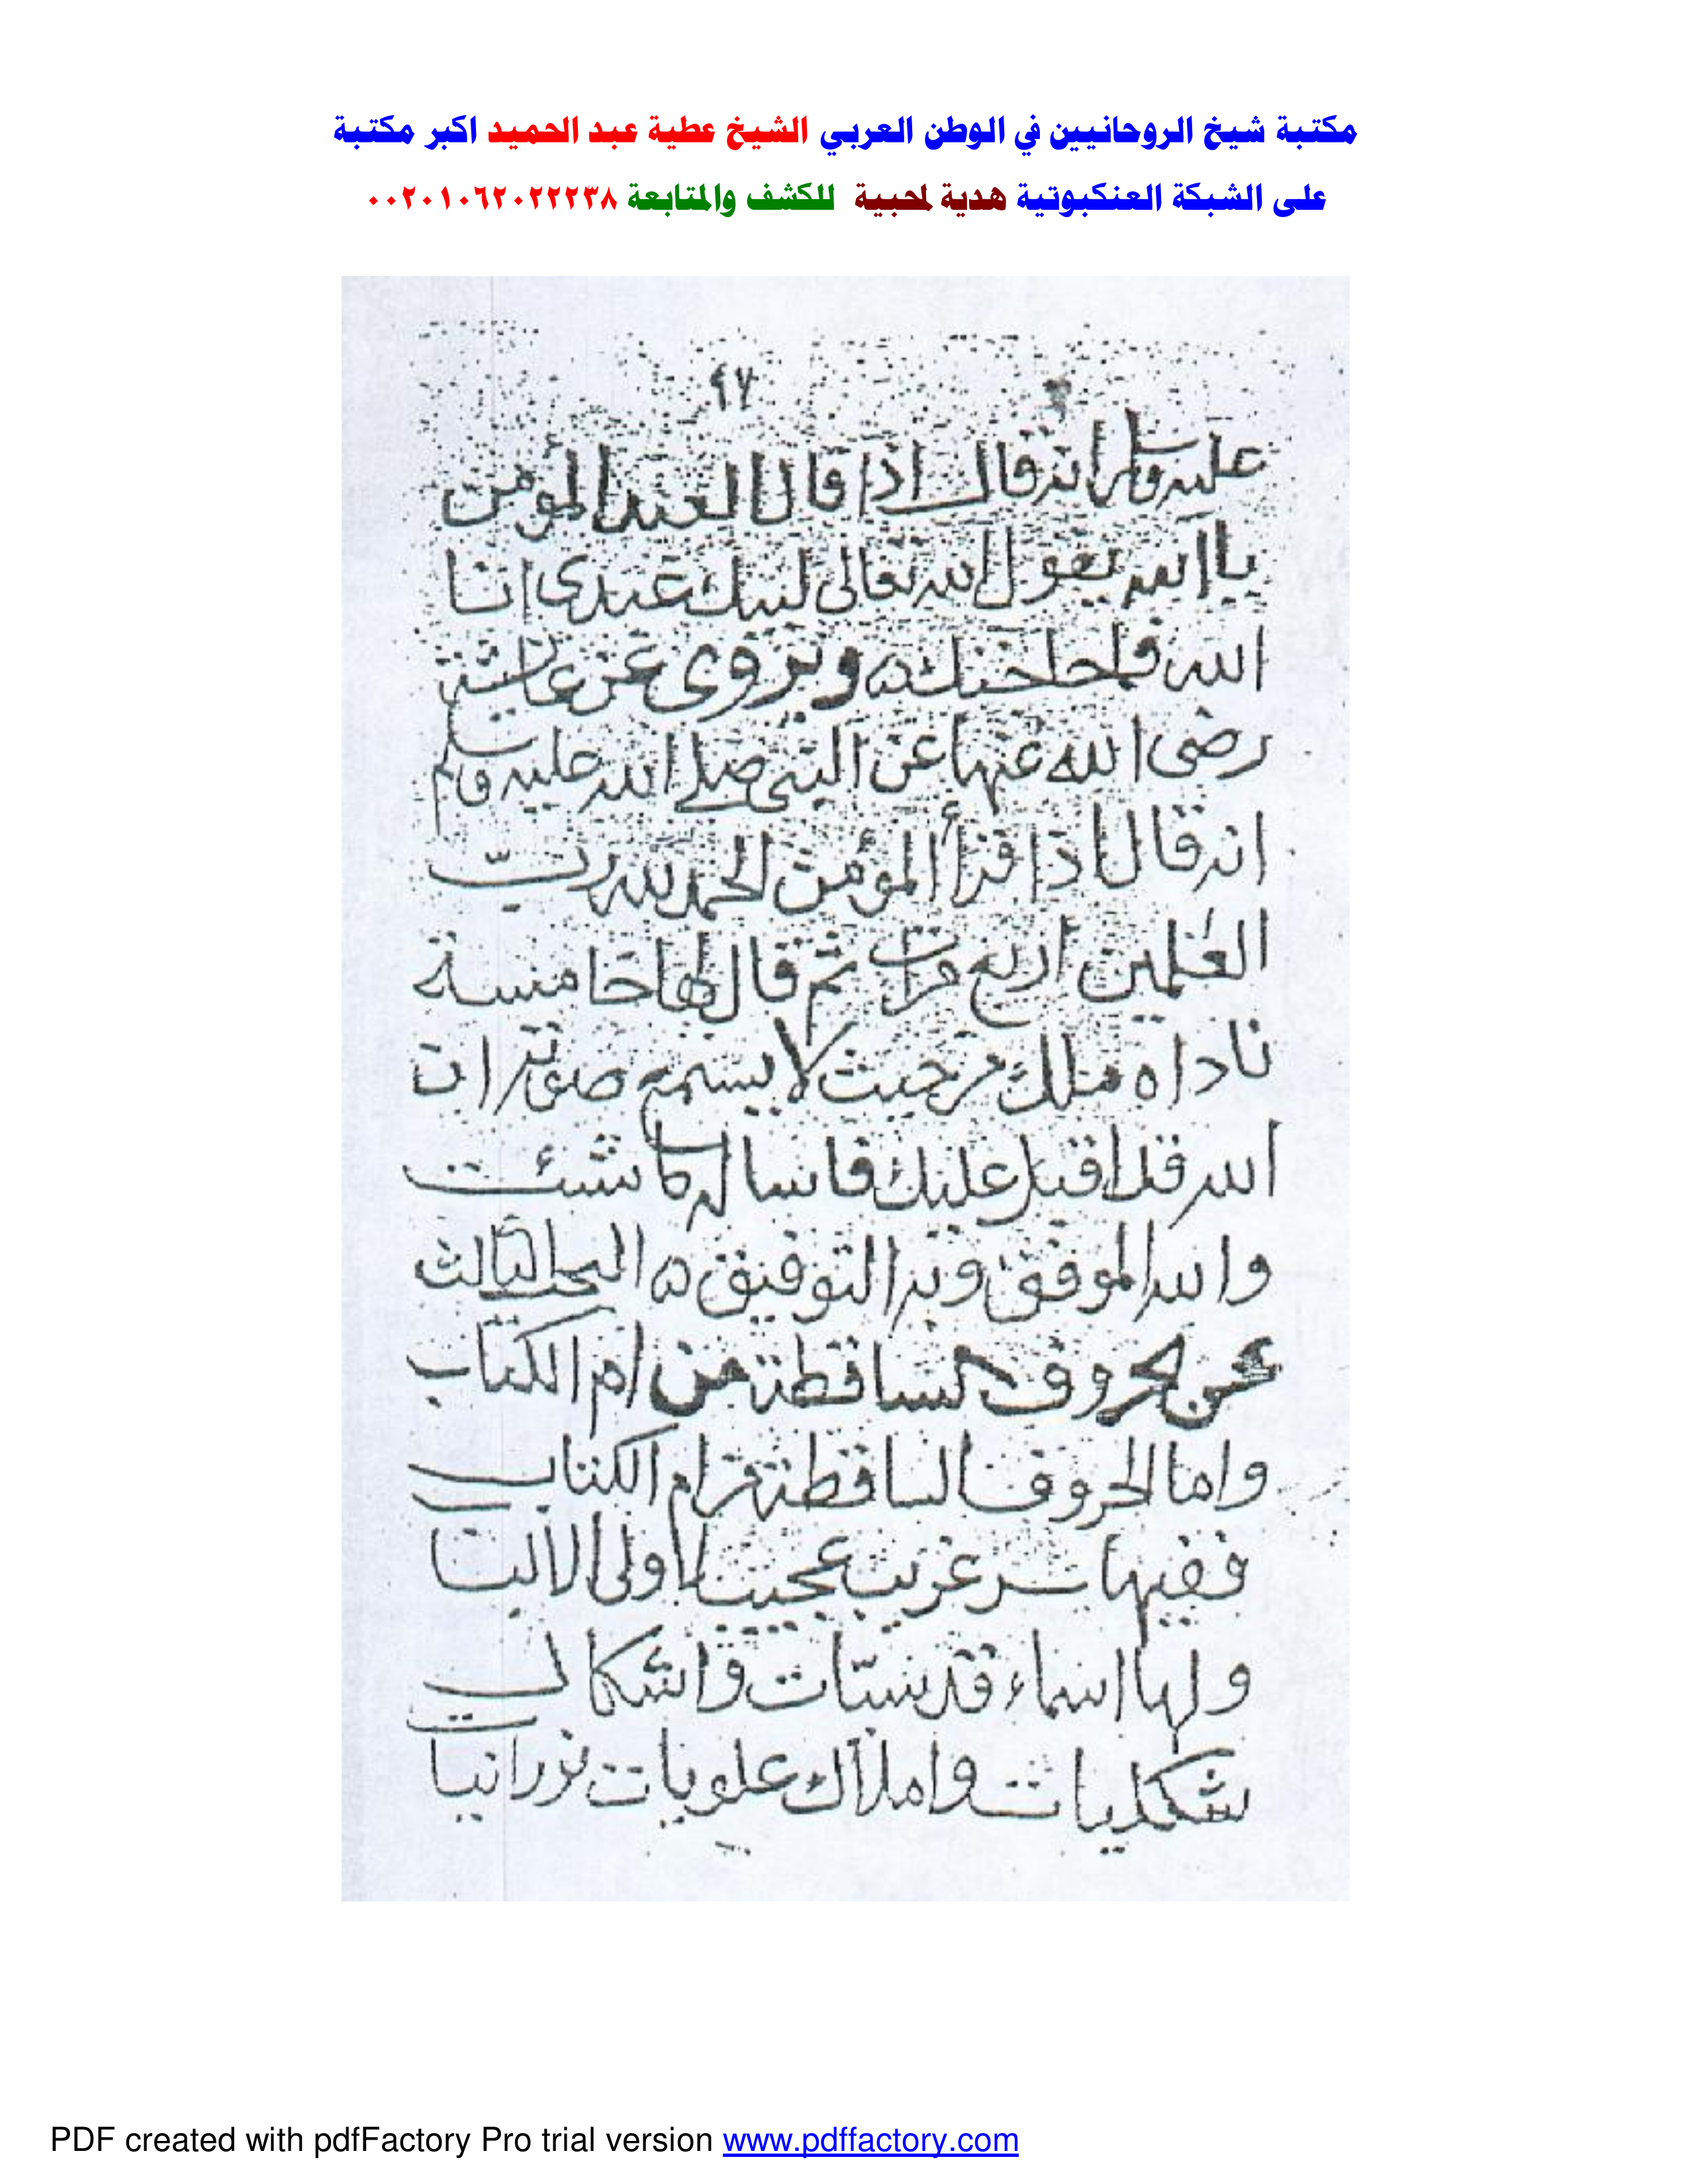 مكتبة شيخ الروحانيين في الوطن العربي الشيخ عطية عبد الحميد اكبر مكتبة
على الشبكة العنكبوتية هدية لمحبية للكشف والمتابعة ٠٠٢٠١٠٦٢٠٢٢٢٣٨
٩٧
عليه وسلم انه قال اذا قال العبد المؤمن
يا الله يقول الله تعالى لبيك عبدى انا
الله فما حاجتك ويروى عن عائشة
رضى الله عنها عن النبى صلى الله عليه وسلم
انه قال اذا قرأ المؤمن الحمد لله ربّ
العلمين اربع مرات ثم قال لها خامسة
ناداه ملك من حيث لا يسمع صوته ان
الله قد اقبل عليك فاساله ما شئت
والله الموفق وبه التوفيق البحث الثالث
عن الحروف الساقطة من ام الكتاب
واما الحروف الساقطة من ام الكتاب
ففيها سر غريب عجيب اولى الالبا
ولها اسماء قدسيّات واشكال
شكليات واملاك علويات نورانيا
PDF created with pdfFactory Pro trial version www.pdffactory.com